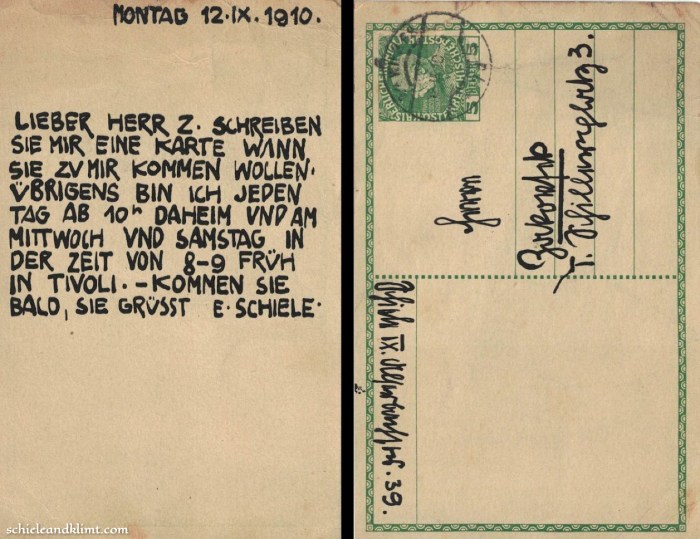 MONTAG 12.IX.1910.
LIEBER HERR Z. SCHREIBEN
SIE MIR EINE KARTE WANN
SIE ZU MIR KOMMEN WOLLEN.
ÜBRIGENS BIN ICH JEDEN
TAG AB 10h DAHEIM UND AM
MITTWOCH UND SAMSTAG IN
DER ZEIT VON 8-9 FRÜH
IN TIVOLI. – KOMMEN SIE
BALD, SIE GRÜSST E. SCHIELE.
schieleandklimt.com
5 5
I. Schillerplatz 3.
IX. 39.